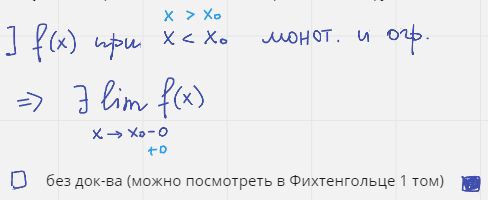 x > x₀
] f(x) при x < x₀ монот. и огр.
=> ∃ lim f(x)
x → x₀-0
+0
без док-ва (можно посмотреть в Фихтенгольце 1 том)